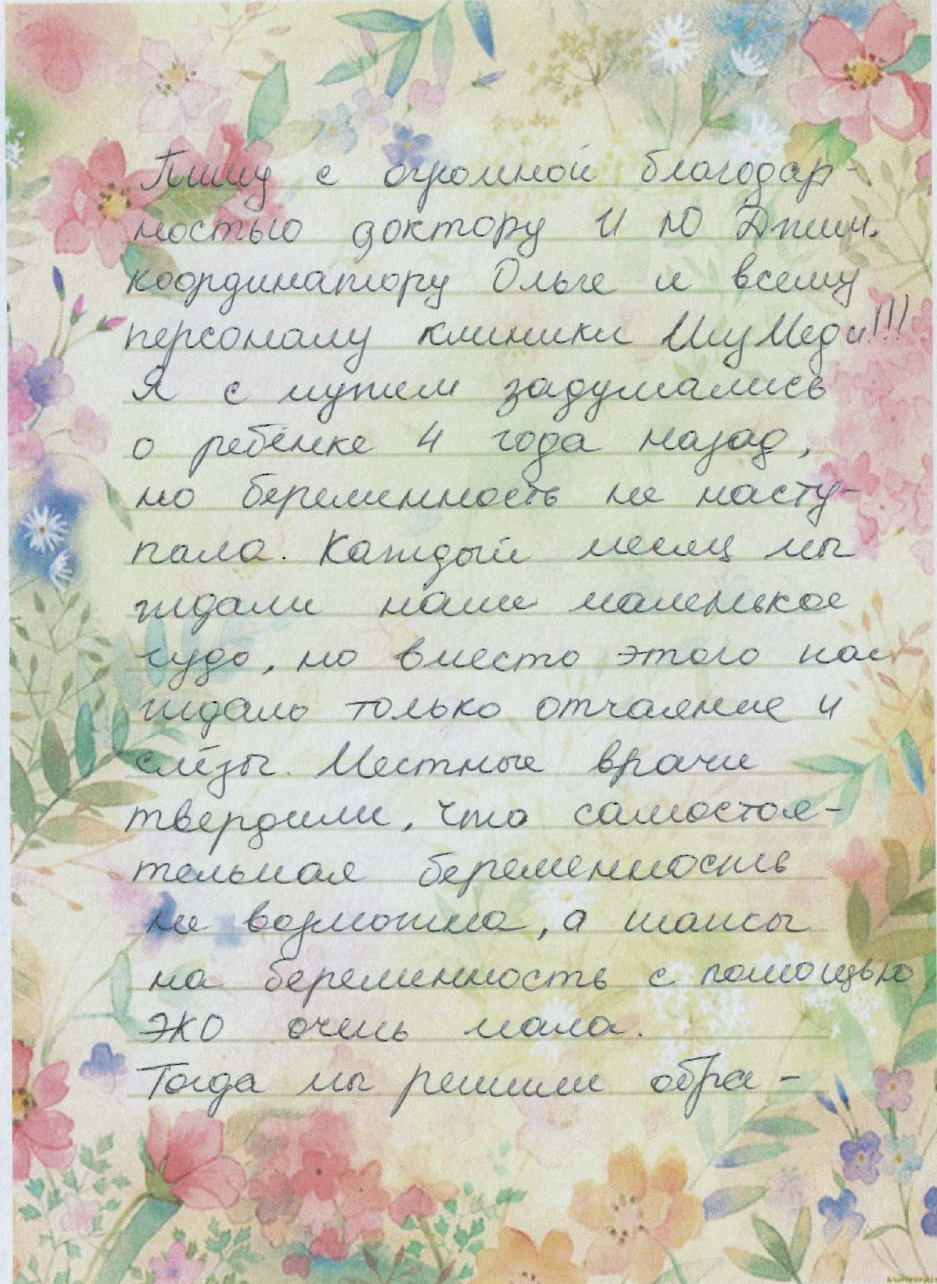 Пишу с огромной благодар-
ностью доктору И Ю Джин.
координатору Ольге и всему
персоналу клиники МизМеди!!!
Я с мужем задумались
о ребёнке 4 года назад,
но беременность не насту-
пала. Каждый месяц мы
ждали наше маленькое
чудо, но вместо этого нас
ждало только отчаяние и
слёзы. Местные врачи
твердили, что самостоя-
тельная беременность
не возможна, а шансы
на беременность с помощью
ЭКО очень мала.
Тогда мы решили обра-